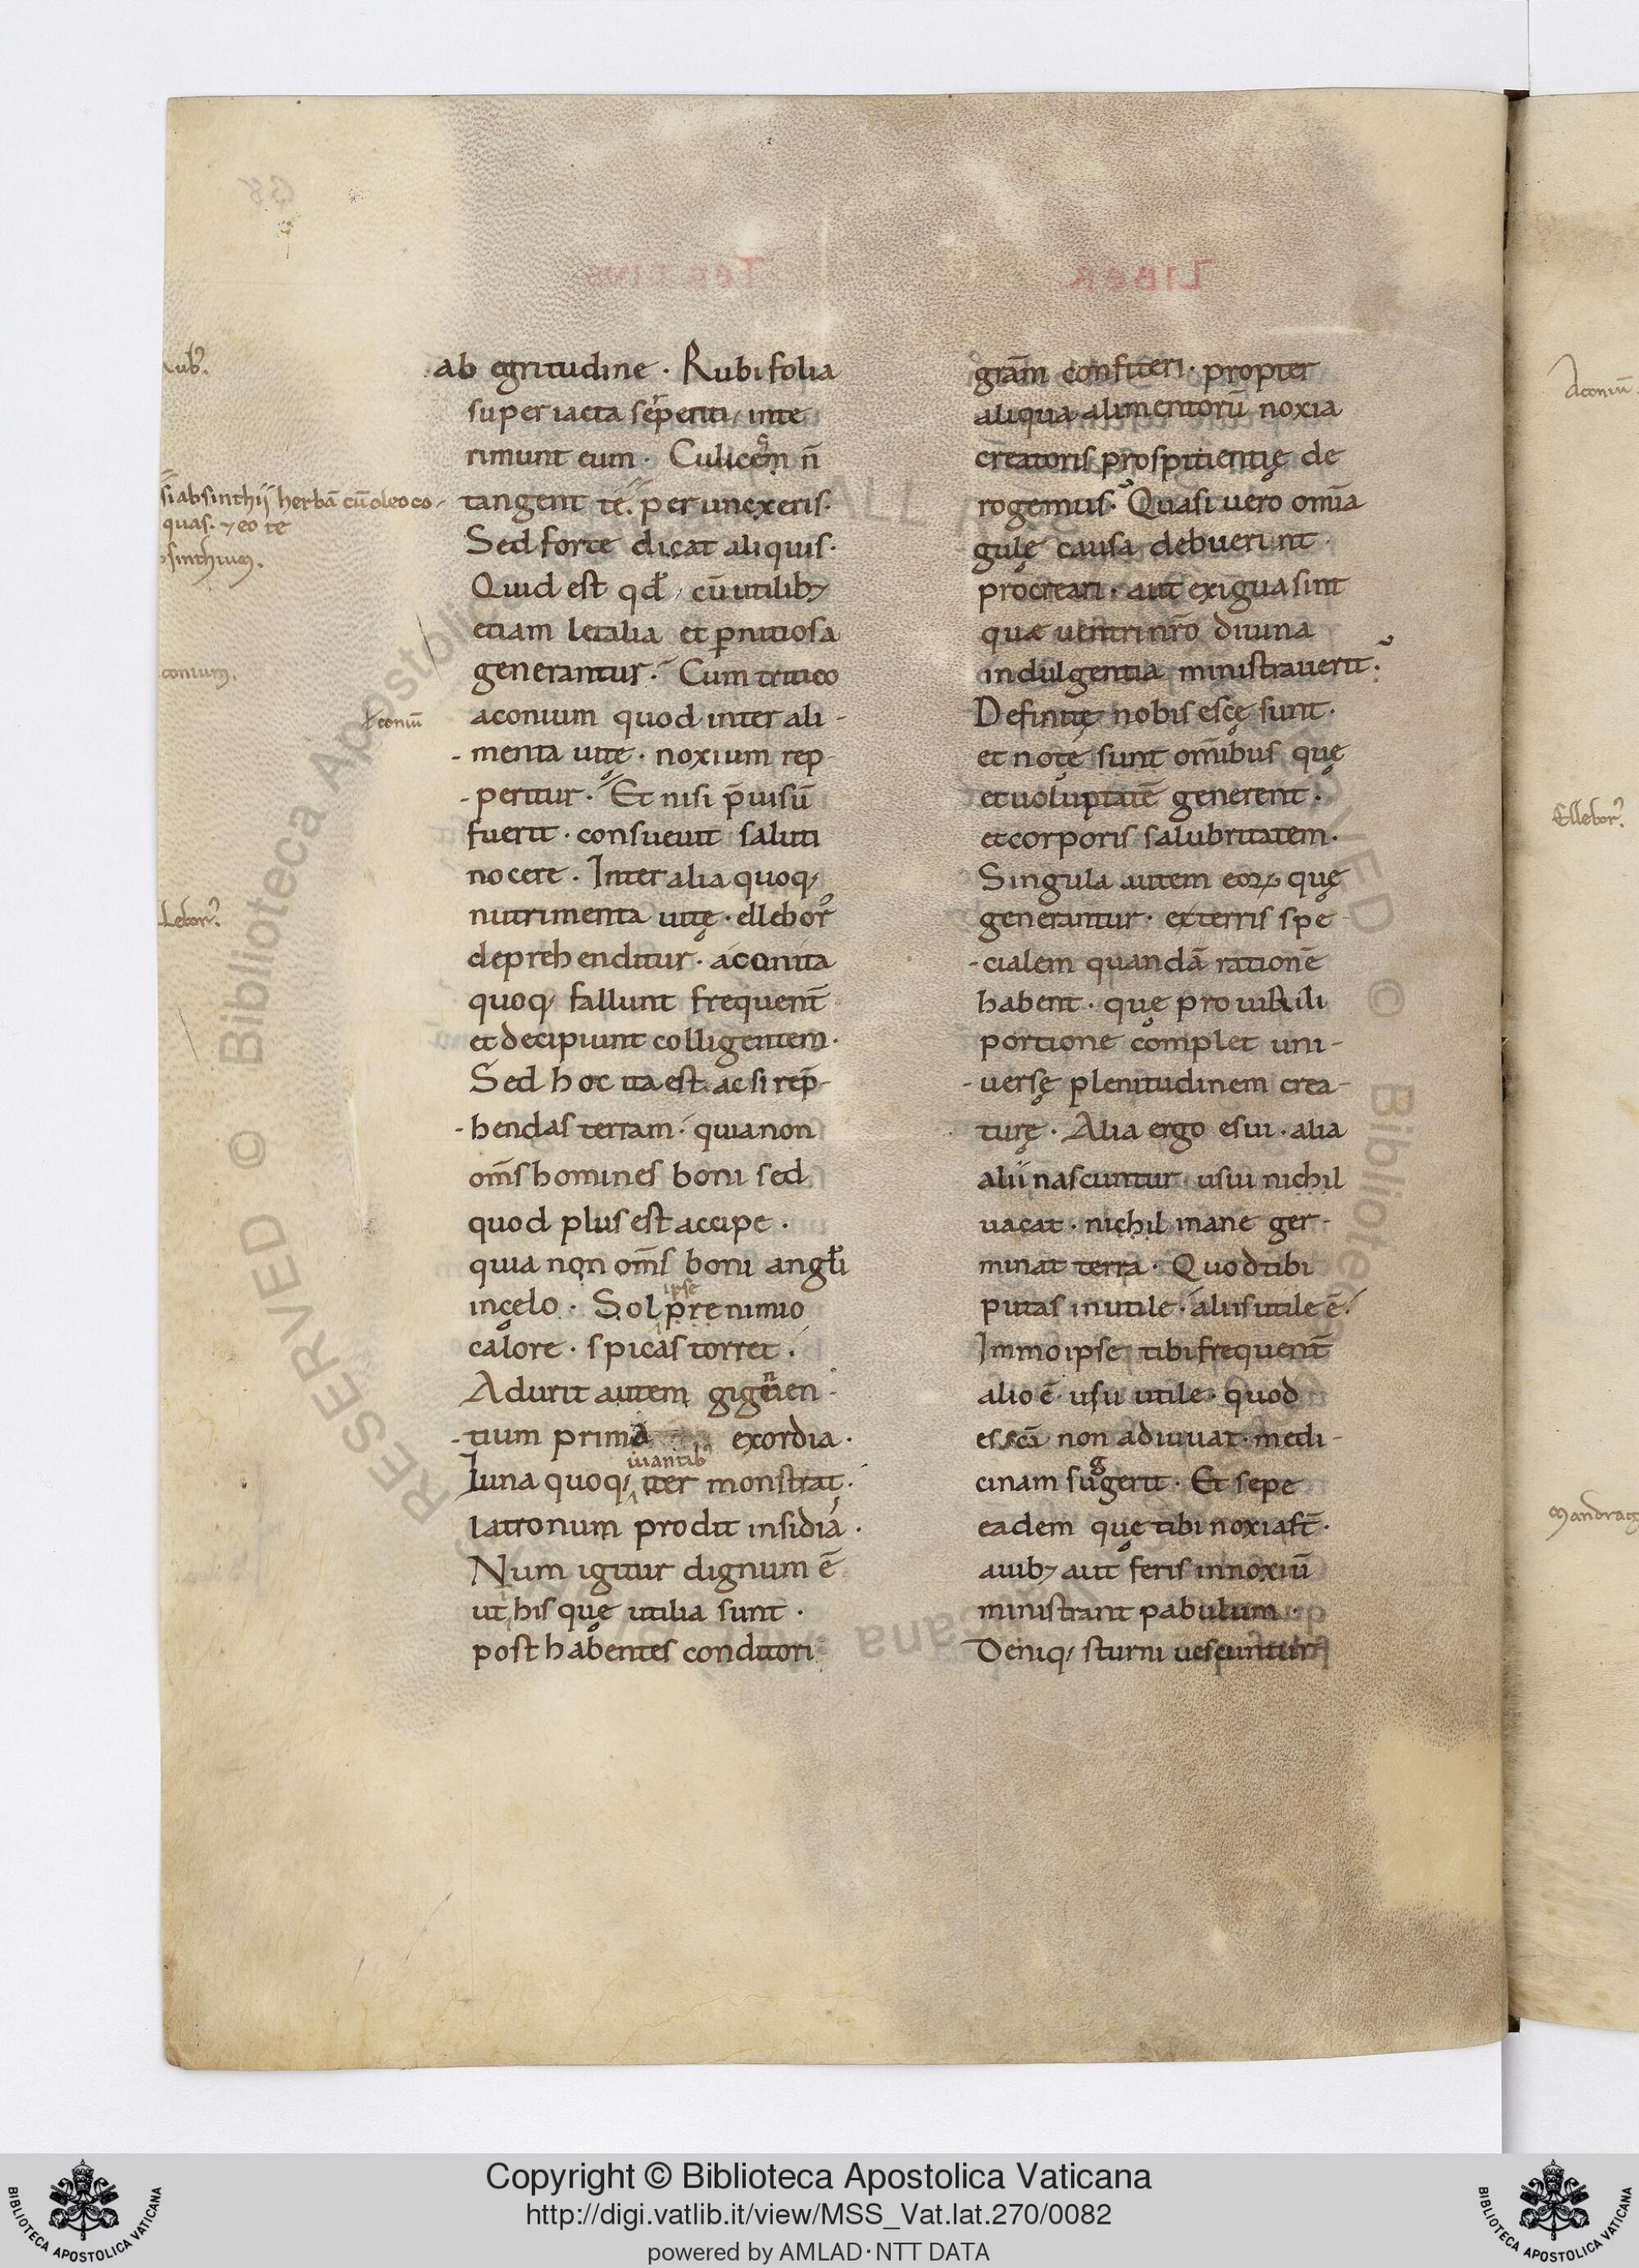 ab egritudine · Rubi folia
super iacta serpenti, inte
rimunt eum · Culicem n̄
tangent te · per unexeris ·
Sed forte dicat aliquis ·
Quid est qđ, cū utilib;
etiam letalia et ꝑnitiosa
generantur · Cum tritico
aconium quod inter ali-
-menta uitę · noxium rep-
-peritur · Et nisi p̄uisū
fuerit · consueuit saluti
nocere · Inter alia quoq;
nutrimenta uitę · ellebor᾿
deprehenditur · aconita
quoq; fallunt frequent̄
et decipiunt colligentem ·
Sed hoc ita est ac si rep̄-
-hendas terram · quia non
om̄s homines boni sed
quod plus est accipe ·
quia non om̄s boni angł̄i
in cęlo · Sol ipse pre nimio
calore · spicas torret ·
Adurit autem gignen-
-tium prima exordia ·
Luna quoq; uiantib; iter monstrat ·
latronum prodit insidia ·
Num igitur dignum ē
ut his quę utilia sunt ·
posthabentes conditori
gr̄am confiteri · propter
aliqua alimentorū noxia
creatoris prospitientię de
rogemus · Quasi uero omīa
gulę causa debuerint
procreari · aut exigua sint
quæ uentri nr̄o diuina
indulgentia ministrauerit ·
Definitę nobis escę sunt ·
et notę sunt om̄ibus quę
et uoluptatē generent ·
et corporis salubritatem ·
Singula autem eoꝝ quę
generantur · ex terris spe-
-cialem quandā rationē
habent · quę pro uirili
portione complet uni-
-uersę plenitudinem crea-
turę · Alia ergo esui · alia
alii nascuntur usui nichil
uacat · nichil inane ger-
minat terra · Quod tibi
putas inutile · aliis utile ē ·
Immo ipse tibi frequent̄
alio ē usu utile · quod
escā non adiuuat · medi-
cinam suggerit · Et sepe
eadem quę tibi noxia st̄ ·
auib; aut feris innoxiū
ministrant pabulum ·
Deniq; sturni uescuntur
si absinthij herbā cū oleo co-
quas · ⁊ eo te
Aconiū
Aconiū
Ellebor᾿
RESERVED © Biblioteca Apostolica
Copyright © Biblioteca Apostolica Vaticana
http://digi.vatlib.it/view/MSS_Vat.lat.270/0082
powered by AMLAD·NTT DATA
BIBLIOTECA APOSTOLICA VATICANA
BIBLIOTECA APOSTOLICA VATICANA